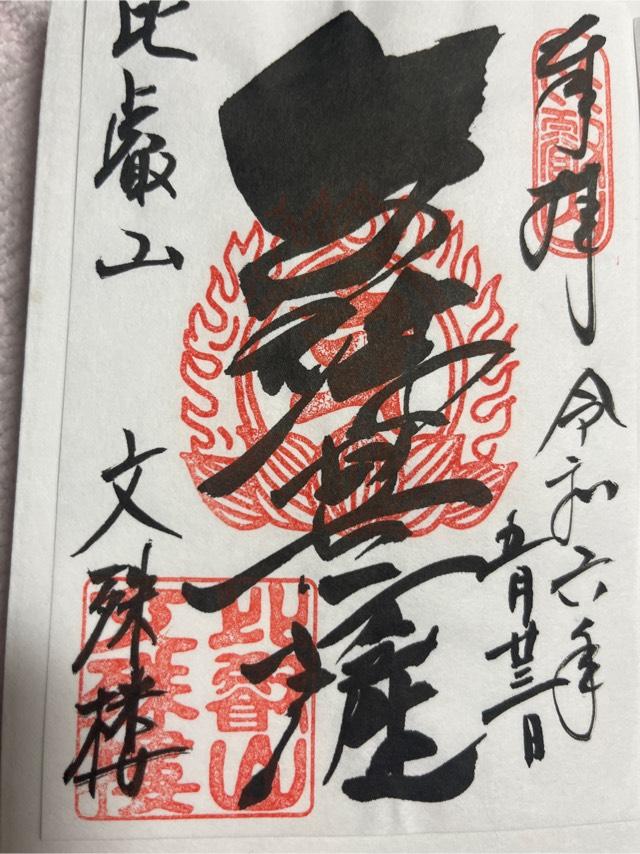 奉拝
令和六年
五月廿三日
文殊菩薩
比叡山
文殊楼
比叡山
文殊楼